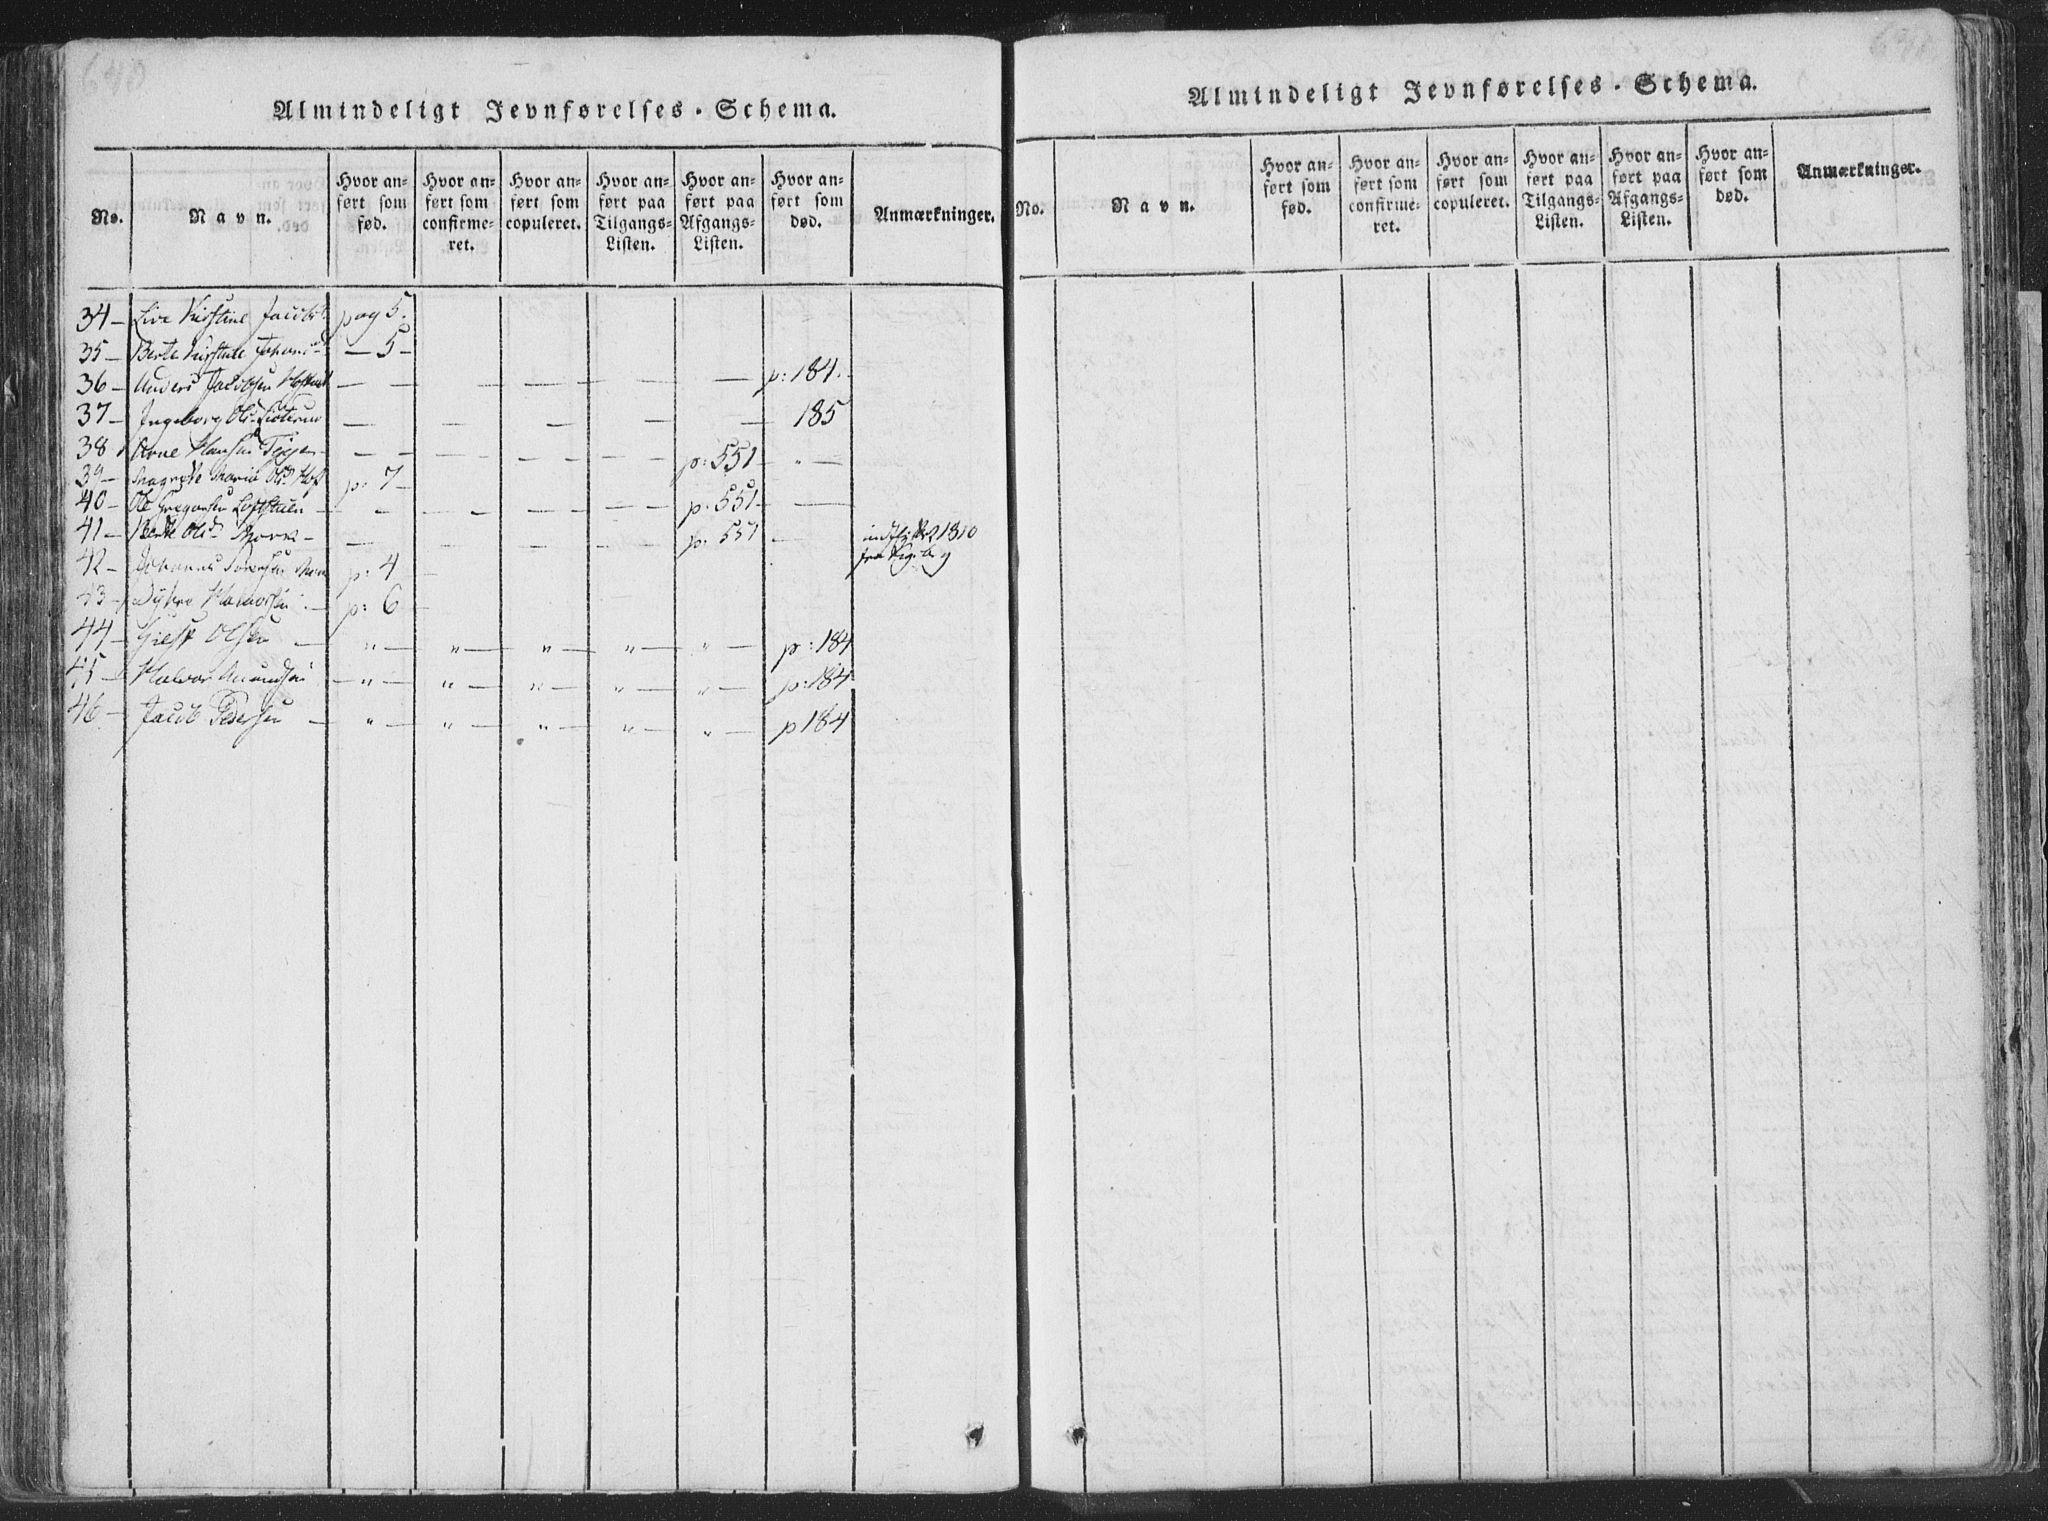 640
Almindeligt Jevnførelses-Schema.
No.
Navn.
Hvor an-
ført som
fød.
Hvor an-
ført som
confirme-
ret.
Hvor an-
ført som
copuleret.
Hvor an-
ført paa
Tilgangs-
Listen.
Hvor an-
ført paa
Afgangs-
Listen.
Hvor an-
ført som
død.
Anmærkninger.
34 – Live Kirstine Jacobsd pag 5.
35 – Berte Johansd – 5 –
36 – Anders Jacobsen — — — — — — p: 184.
37 – Ingeborg Olsd — — — — — 185
38 Arne Hansen — — — — — p: 551 – " –
39 – Magrete Maria Olsd Hof p: 7 –
40 – Ole Gregersen — — — — — p: 551 – —
41 – Berte Olsd Moen – — — — — p: 551 —
1810
fra
42 – Johannes p: 4 –
43 – Halvorsen – p: 6 –
44 – Olsen — " — " — " — " — " — p: 184
45 – Halvor Amundsen — " — " — " — " — " — p: 184
46 – Jacob Pedersen — " — " — " — " — " — p 184
641
Almindeligt Jevnførelses-Schema.
No.
Navn.
Hvor an-
ført som
fød.
Hvor an-
ført som
confirme-
ret.
Hvor an-
ført som
copuleret.
Hvor an-
ført paa
Tilgangs-
Listen.
Hvor an-
ført paa
Afgangs-
Listen.
Hvor an-
ført som
død.
Anmærkninger.